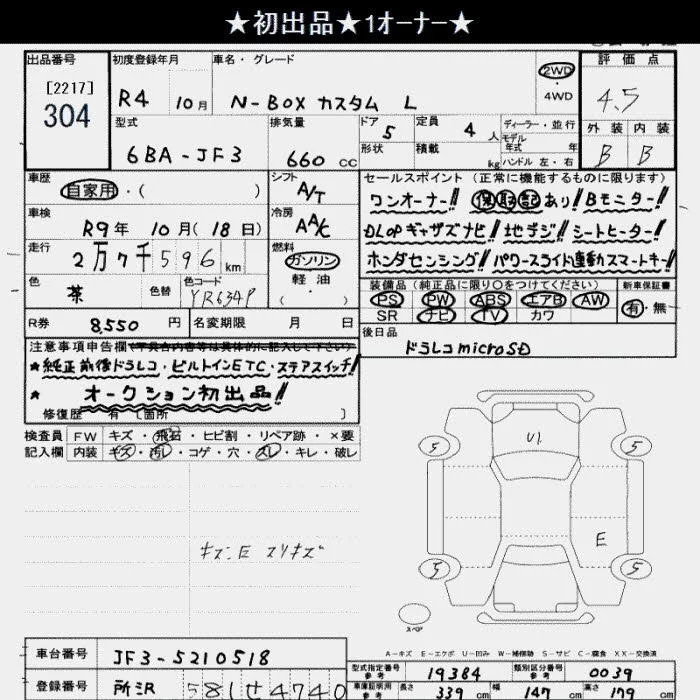 ★初出品★1ｵｰﾅｰ★
出品番号 初度登録年月 車名・グレード 評価点
[2217]
304
R4 10月 N-BOX カスタム L 2WD・4WD 4.5
型式 排気量 ドア 5 定員 4人 ディーラー・並行 外装 内装
6BA-JF3 660 cc 形状 積載 kg モデル年式 年 ハンドル 左・右 B B
車歴 自家用・( ) シフト A/T
セールスポイント（正常に機能するものに限ります）
ワンオーナー!! 保取記あり! Bモニター!
車検 R9年 10月(18日) 冷房 AAC
DLOPギャザズナビ! 地デジ! シートヒーター!
走行 2万7千596km 燃料 ガソリン・軽油・( )
ホンダセンシング! パワースライド連動スマートキー!
色 茶 色替 色コード YR634P
装備品（純正品に限り○をつけてください） 新車保証書
PS PW ABS エアB AW 有・無
SR ナビ TV カワ
R券 8,550円 名変期限 月 日
後日品
ドラレコmicroSD
注意事項申告欄
★純正前後ドラレコ・ビルトインETC・ステアスイッチ!
★ オークション初出品!!
修復歴 有 [箇所 ]
検査員 FW キズ・飛石・ヒビ割・リペア跡・×要
記入欄 内装 キズ・汚レ・コゲ・穴・スレ・キレ・破レ
U1
5 5
E
キズ、E スリキズ
5 5
スペア
A-キズ E-エクボ U-凹み W-補修跡 S-サビ C-腐食 XX-交換済
車台番号 JF3-5210518
型式指定番号 参考 19384 類別区分番号 参考 0039
登録番号 所沢 581せ4740
車庫証明用 参考 長さ 339cm 幅 147cm 高さ 179cm